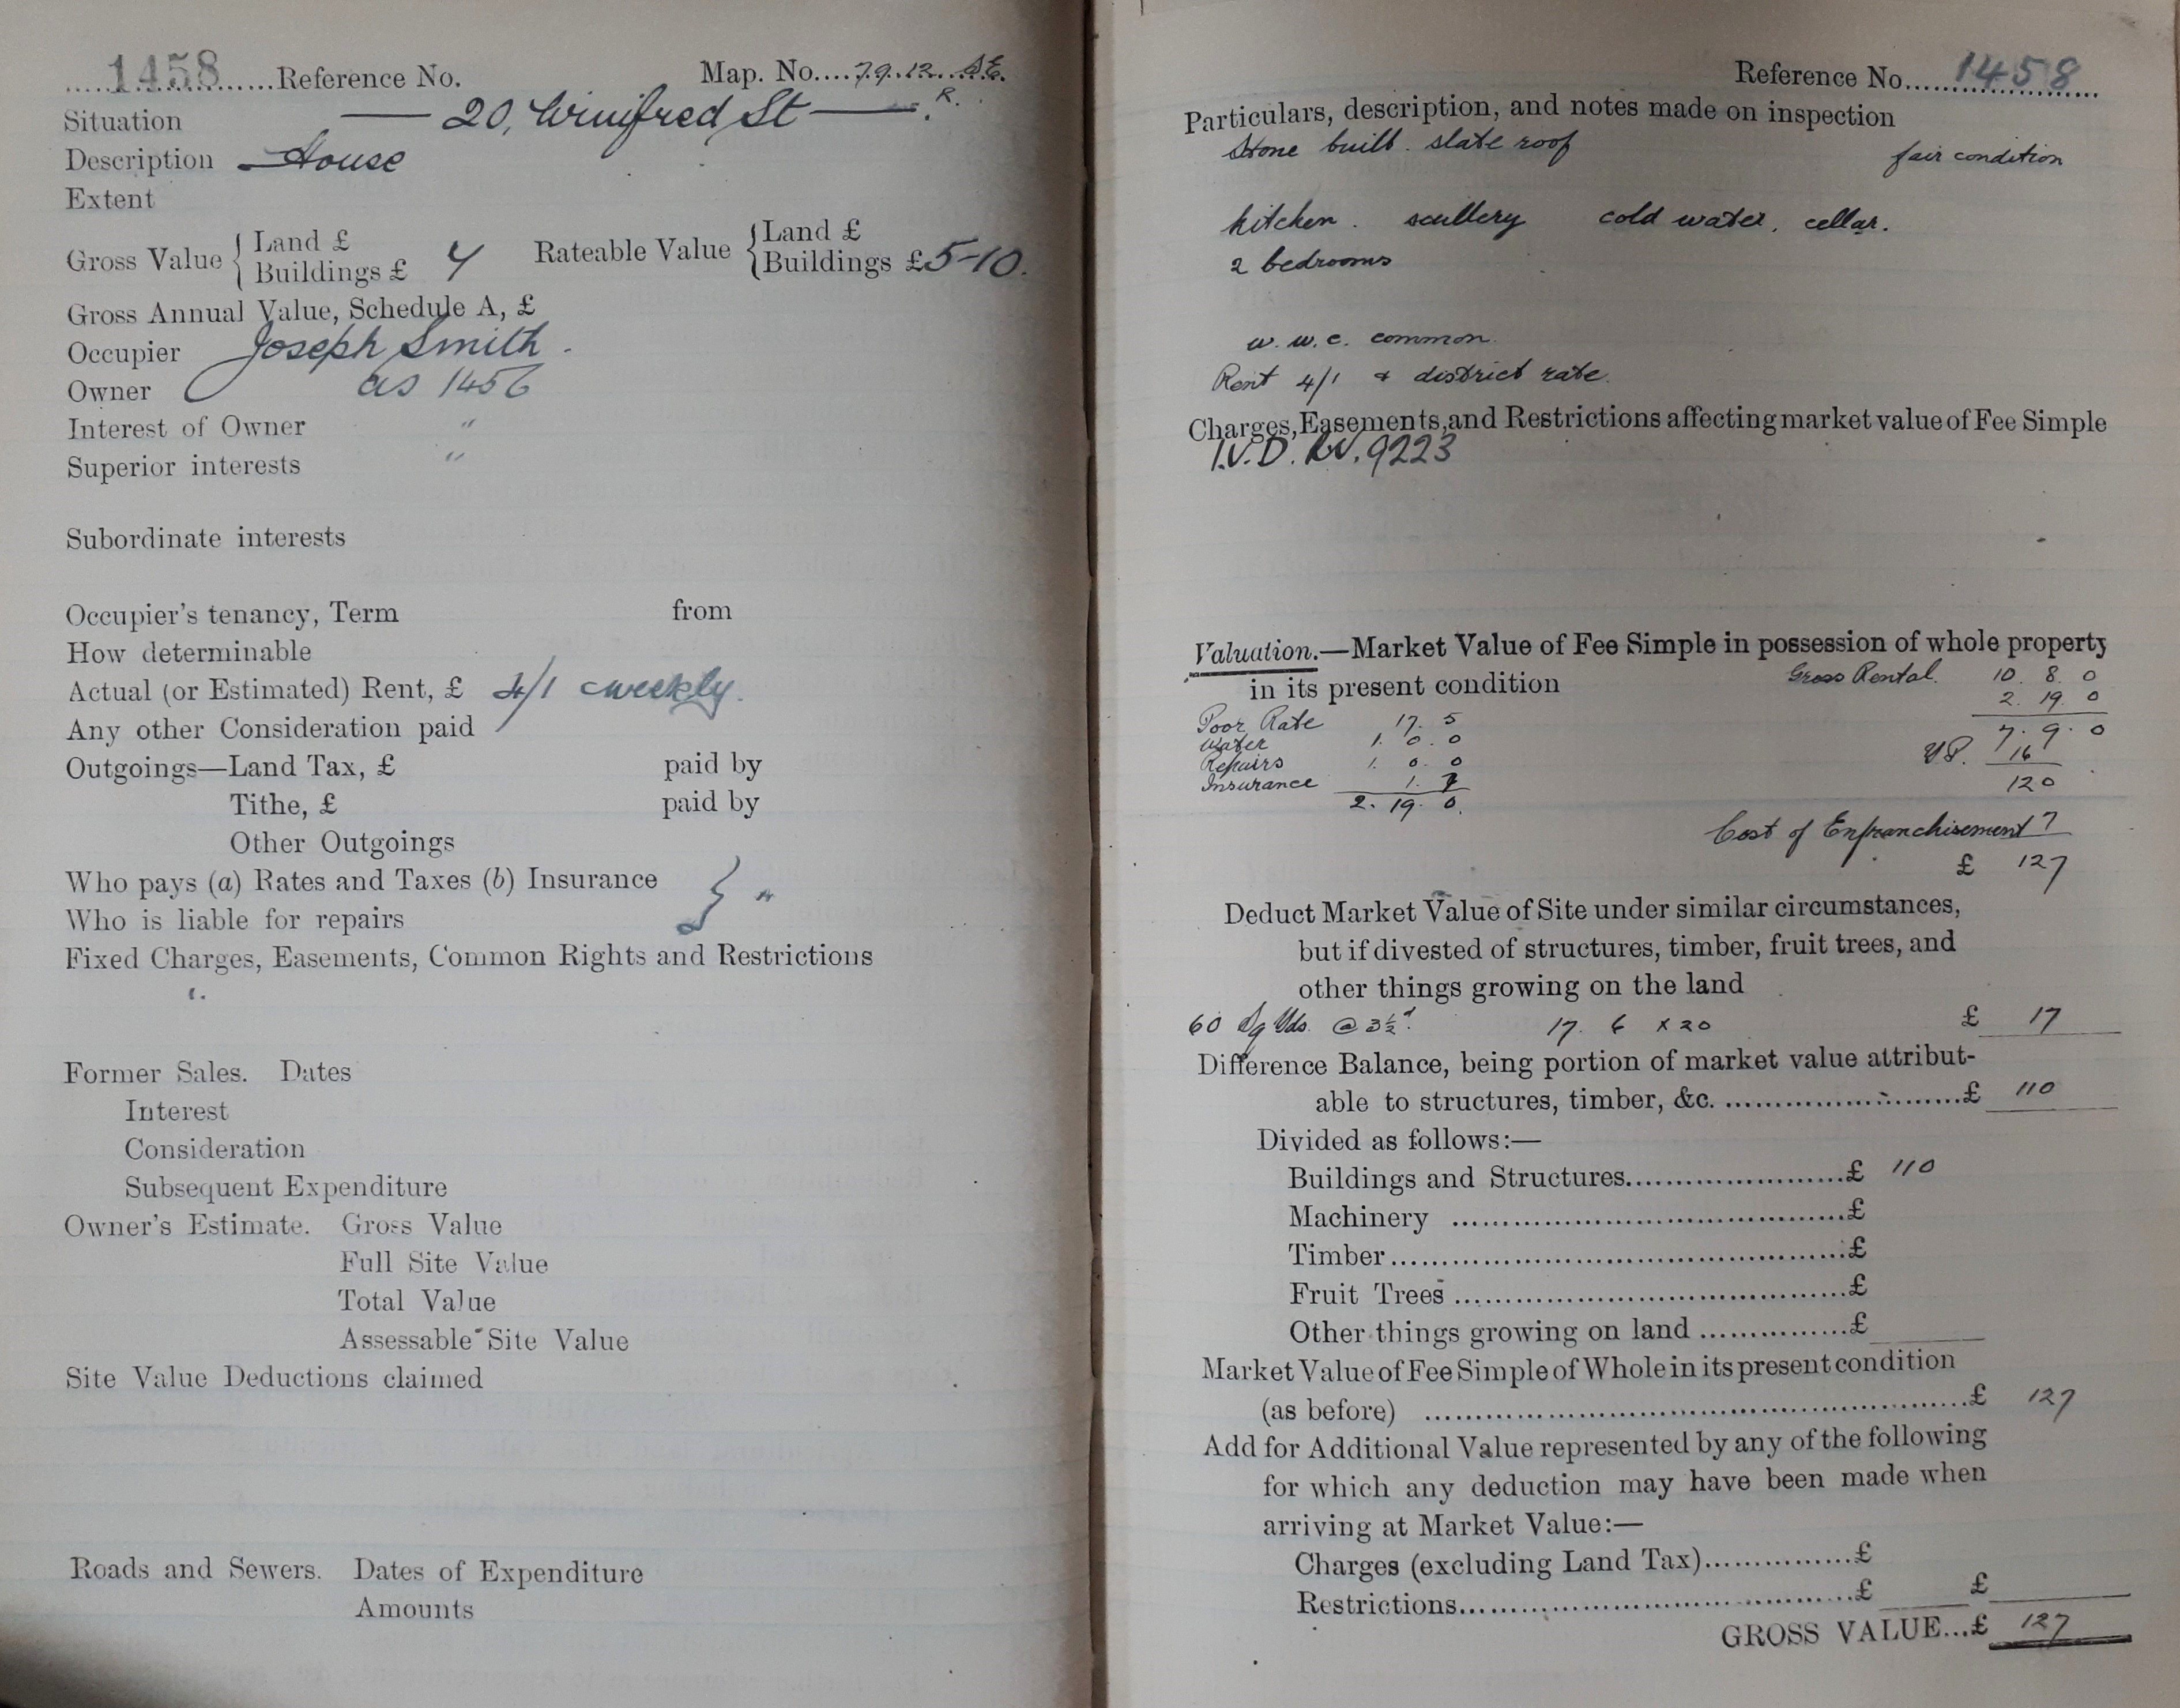 1458 Reference No. Map. No. 79.12. S.E.
R.
Situation — 20, Winifred St —
Description — House
Extent
Gross Value { Land £ Rateable Value { Land £
Buildings £ 7 Buildings £ 5-10.
Gross Annual Value, Schedule A, £
Occupier Joseph Smith.
Owner as 1456
Interest of Owner "
Superior interests "
Subordinate interests
Occupier's tenancy, Term from
How determinable
Actual (or Estimated) Rent, £ 4/1 weekly.
Any other Consideration paid
Outgoings—Land Tax, £ paid by
Tithe, £ paid by
Other Outgoings
Who pays (a) Rates and Taxes (b) Insurance } "
Who is liable for repairs
Fixed Charges, Easements, Common Rights and Restrictions
".
Former Sales. Dates
Interest
Consideration
Subsequent Expenditure
Owner's Estimate. Gross Value
Full Site Value
Total Value
Assessable Site Value
Site Value Deductions claimed
Roads and Sewers. Dates of Expenditure
Amounts
Reference No. 1458
Particulars, description, and notes made on inspection
Stone built. slate roof fair condition
kitchen. scullery cold water, cellar.
2 bedrooms
w. w. c. common.
Rent 4/1 & district rate.
Charges, Easements, and Restrictions affecting market value of Fee Simple
I.V.D. RW. 9223
Valuation.—Market Value of Fee Simple in possession of whole property
in its present condition Gross Rental. 10. 8. 0
2. 19. 0
Poor Rate 17. 5
7. 9. 0
Water 1. 0. 0
YP. 16
Repairs 1. 0. 0
120
Insurance 1. 7
2. 19. 0.
Cost of Enfranchisement 7
£ 127
Deduct Market Value of Site under similar circumstances,
but if divested of structures, timber, fruit trees, and
other things growing on the land
60 Sq Yds. @ 3½d. 17. 6 x 20 £ 17
Difference Balance, being portion of market value attribut-
able to structures, timber, &c. £ 110
Divided as follows:—
Buildings and Structures £ 110
Machinery £
Timber £
Fruit Trees £
Other things growing on land £
Market Value of Fee Simple of Whole in its present condition
(as before) £ 127
Add for Additional Value represented by any of the following
for which any deduction may have been made when
arriving at Market Value:—
Charges (excluding Land Tax) £
Restrictions £ £
GROSS VALUE...£ 127